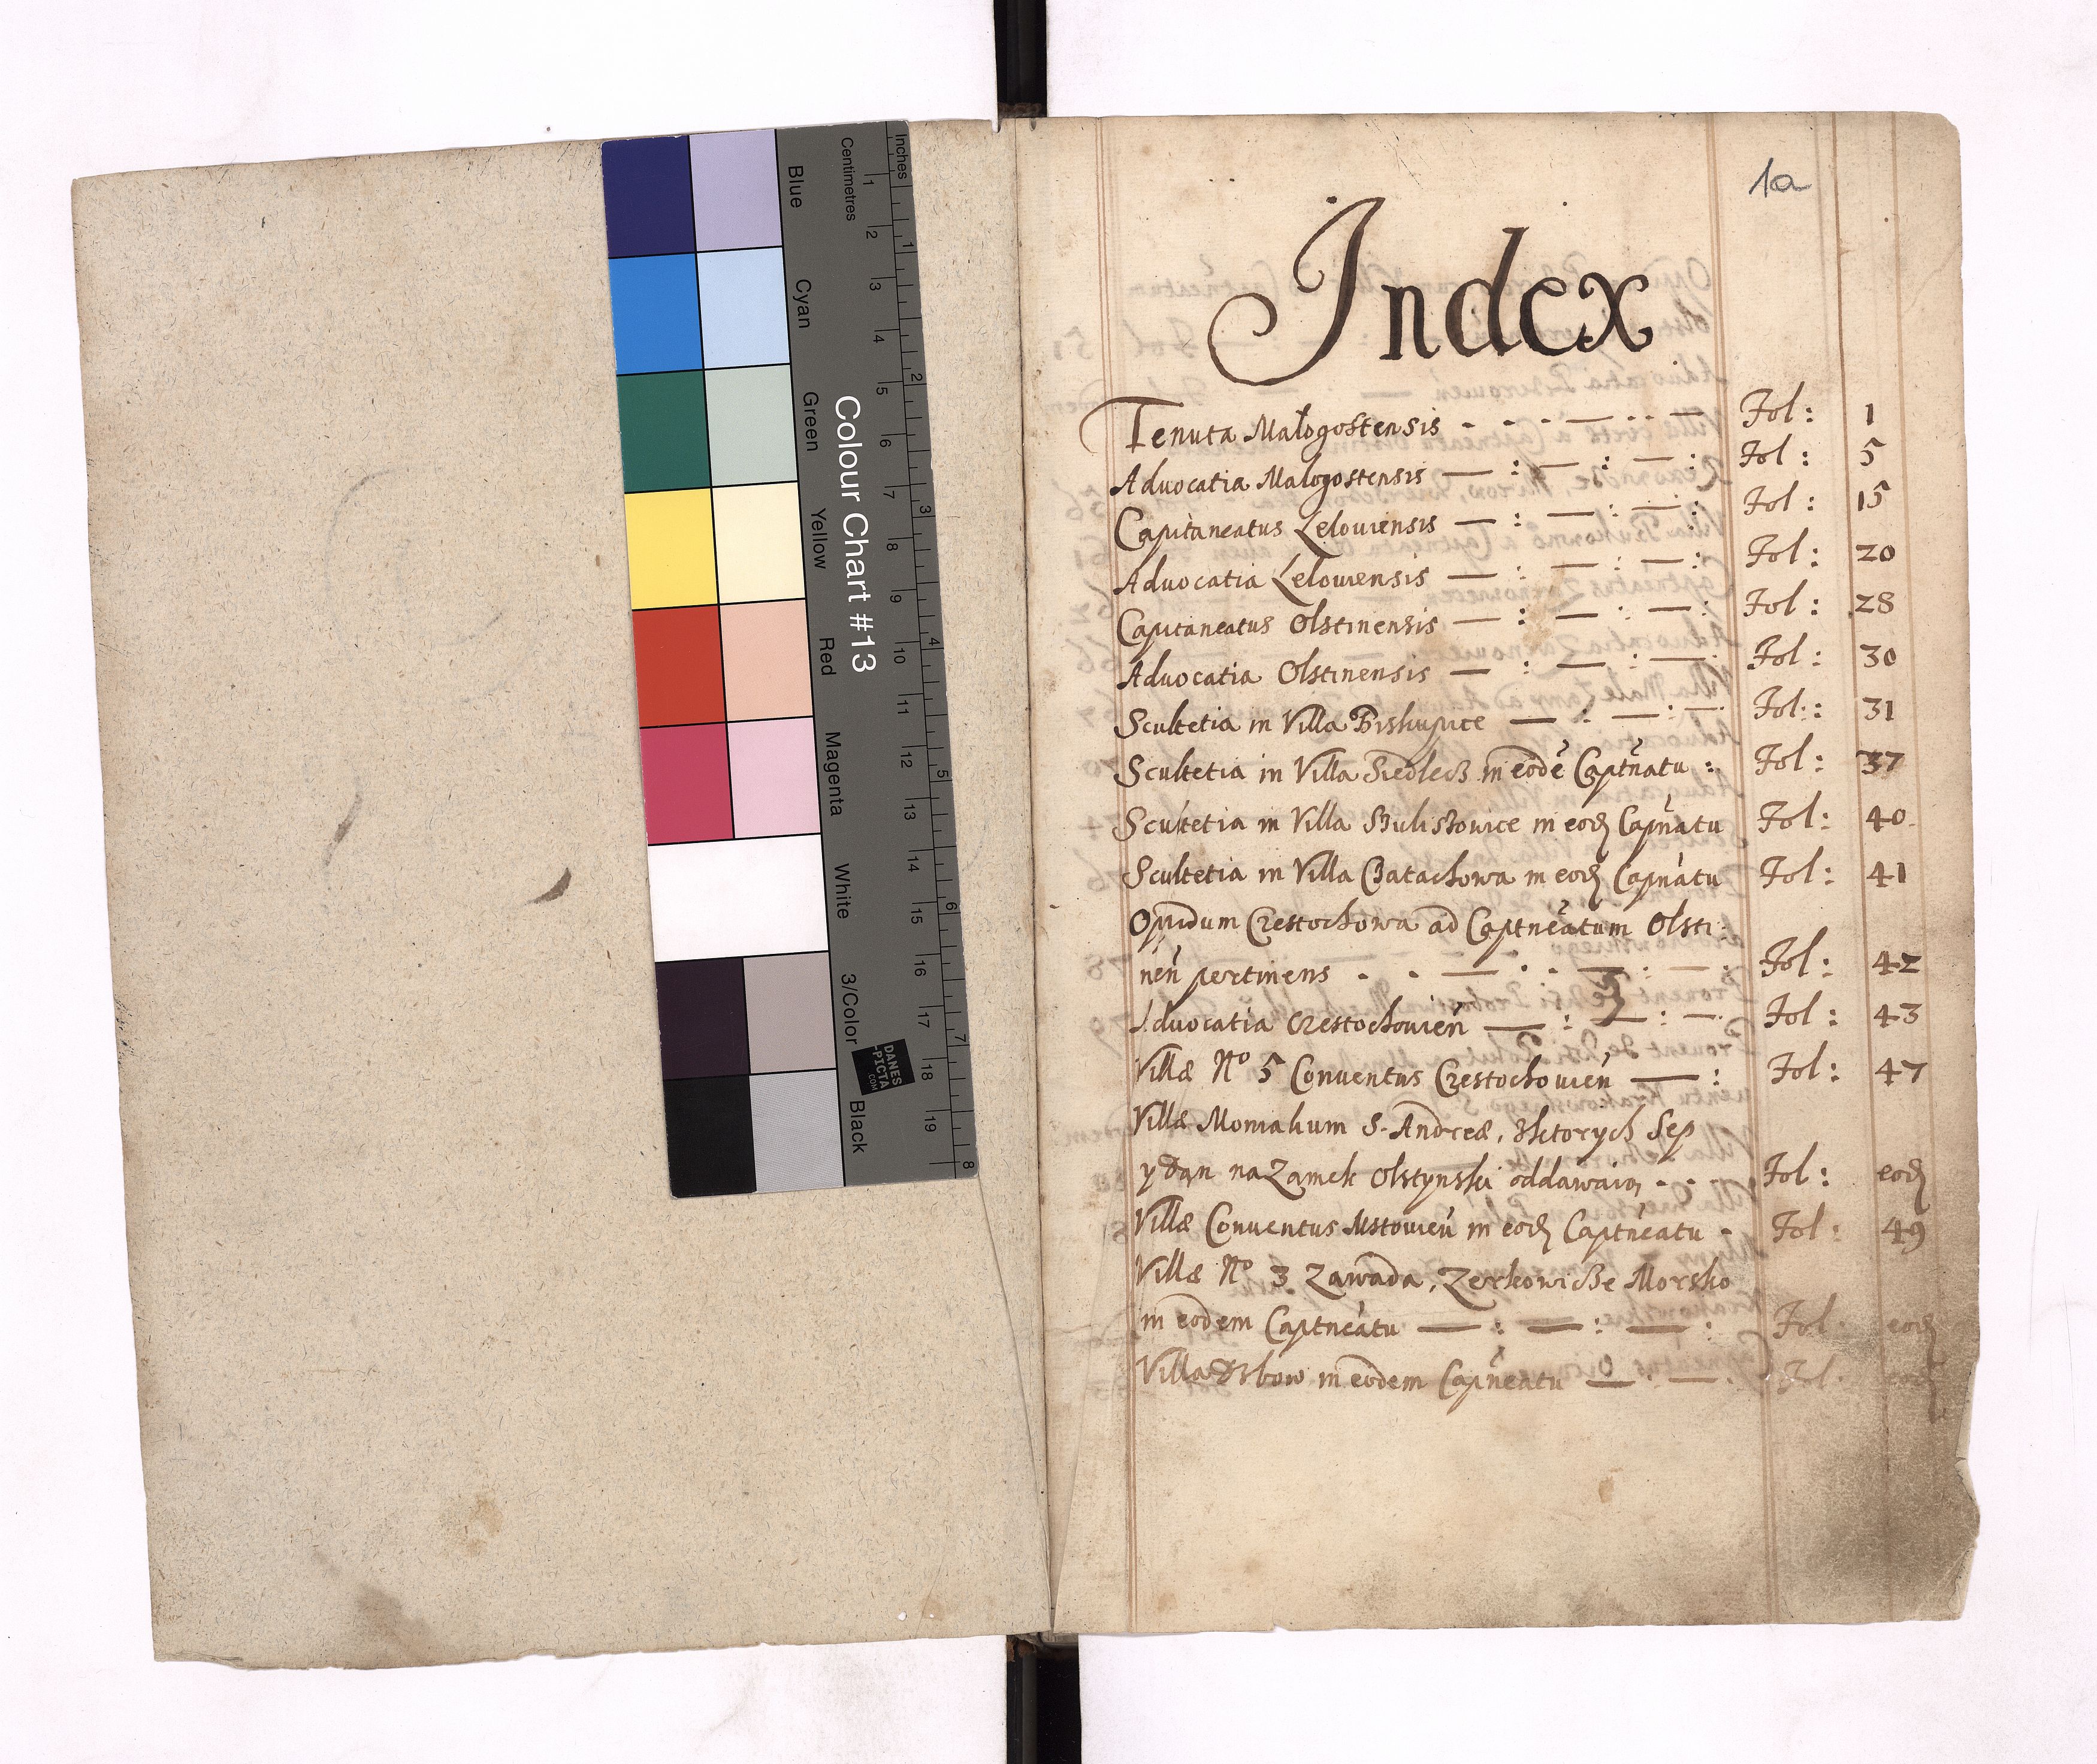 Blue
Cyan
Green
Yellow
Red
Magenta
White
3/Color
Black
Colour Chart #13
Centimetres
1 2 3 4 5 6 7 8 9 10 11 12 13 14 15 16 17 18 19
Inches
1 2 3 4 5 6 7 8
DANES
-PICTA
.COM
1a
Index
Tenuta Małogostensis Fol: 1
Aduocatia Malogostensis Fol: 5
Capitaneatus Lelouiensis Fol: 15
Aduocatia Lelouiensis Fol: 20
Capitaneatus Olstinensis Fol: 28
Aduocatia Olstinensis Fol: 30
Scultetia in Villa Biskupice Fol: 31
Scultetia in Villa Siedlecz in eodē Captn̄atu: Fol: 37
Scultetia in Villa in eod Capn̄atu Fol: 40
Scultetia in Villa in eod Capn̄atu Fol: 41
Opidum Czestochowa ad Captnēatum Olsti:
nen̄ pertinens Fol: 42
Aduocatia Czestochouien̄ Fol: 43
Villæ No 5 Conuentus Czestochouien̄ Fol: 47
Villæ Monialium S. Andreæ, Sep
y dan na Zamek Olstynski oddawaią Fol: eod
Villæ Conuentus Mstouien̄ in eod Captnēatu Fol: 49
Villæ No 3 Zawada, Morsko
in eodem Captnēatu Fol: eod
Villa in eodem Capnēatu Fol: eod